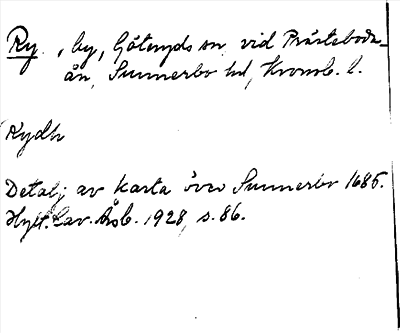 Ry, by, Göteryds sn vid Prästeboda-
ån, Sunnerbo hd, Kronob. l.
Rydh
Detalj av karta över Sunnerbo 1685.
Hylt. Cav. Årsb. 1928, s. 86.